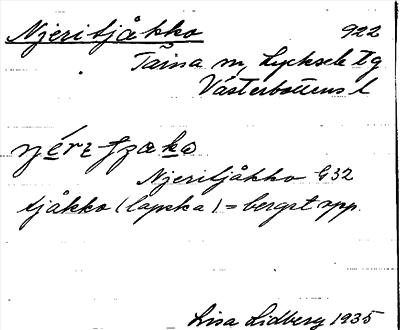 Njeritjåkko 922
Tärna sn, Lycksele tg
Västerbottens l
Njeritjåkko G32
tjåkko (lapska) = bergstopp.
Lisa Lidberg 1935